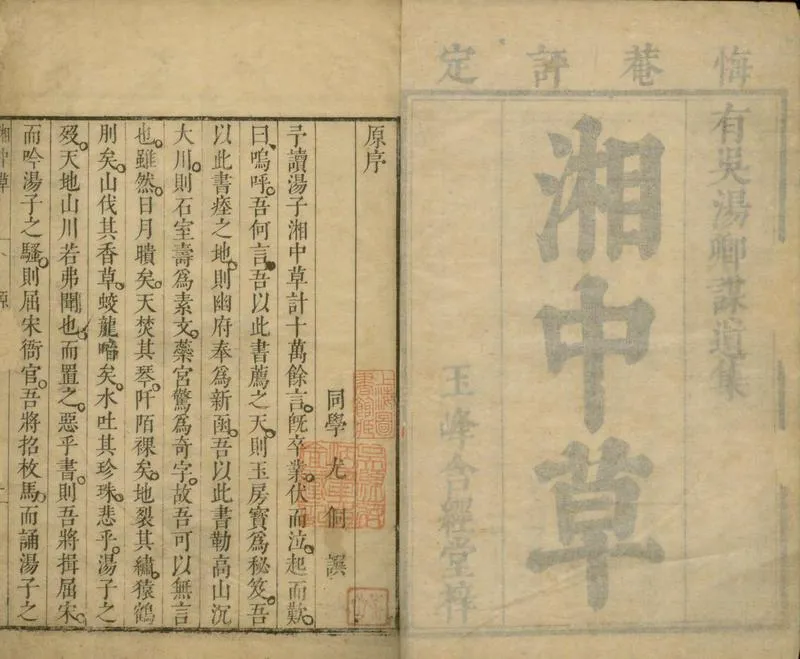 悔菴評定
有吳湯卿謀遺集
湘中草
玉峰含經堂梓
原序
同學尤侗譔
予讀湯子湘中草計十萬餘言旣卒業伏而泣起而歎
曰嗚呼吾何言吾以此書薦之天則玉房寶爲秘笈吾
以此書瘞之地則幽府奉爲新函吾以此書勒高山沉
大川則石室壽爲素文蘂宮驚爲奇字故吾可以無言
也雖然日月瞶矣天焚其琴阡陌裸矣地裂其繡猿鶴
刖矣山伐其香草蛟龍喑矣水吐其珍珠悲乎湯子之
歿天地山川若弗聞也而置之惡乎書則吾將揖屈宋
而吟湯子之騷則屈宋衙官吾將招枚馬而誦湯子之
湘中草
原